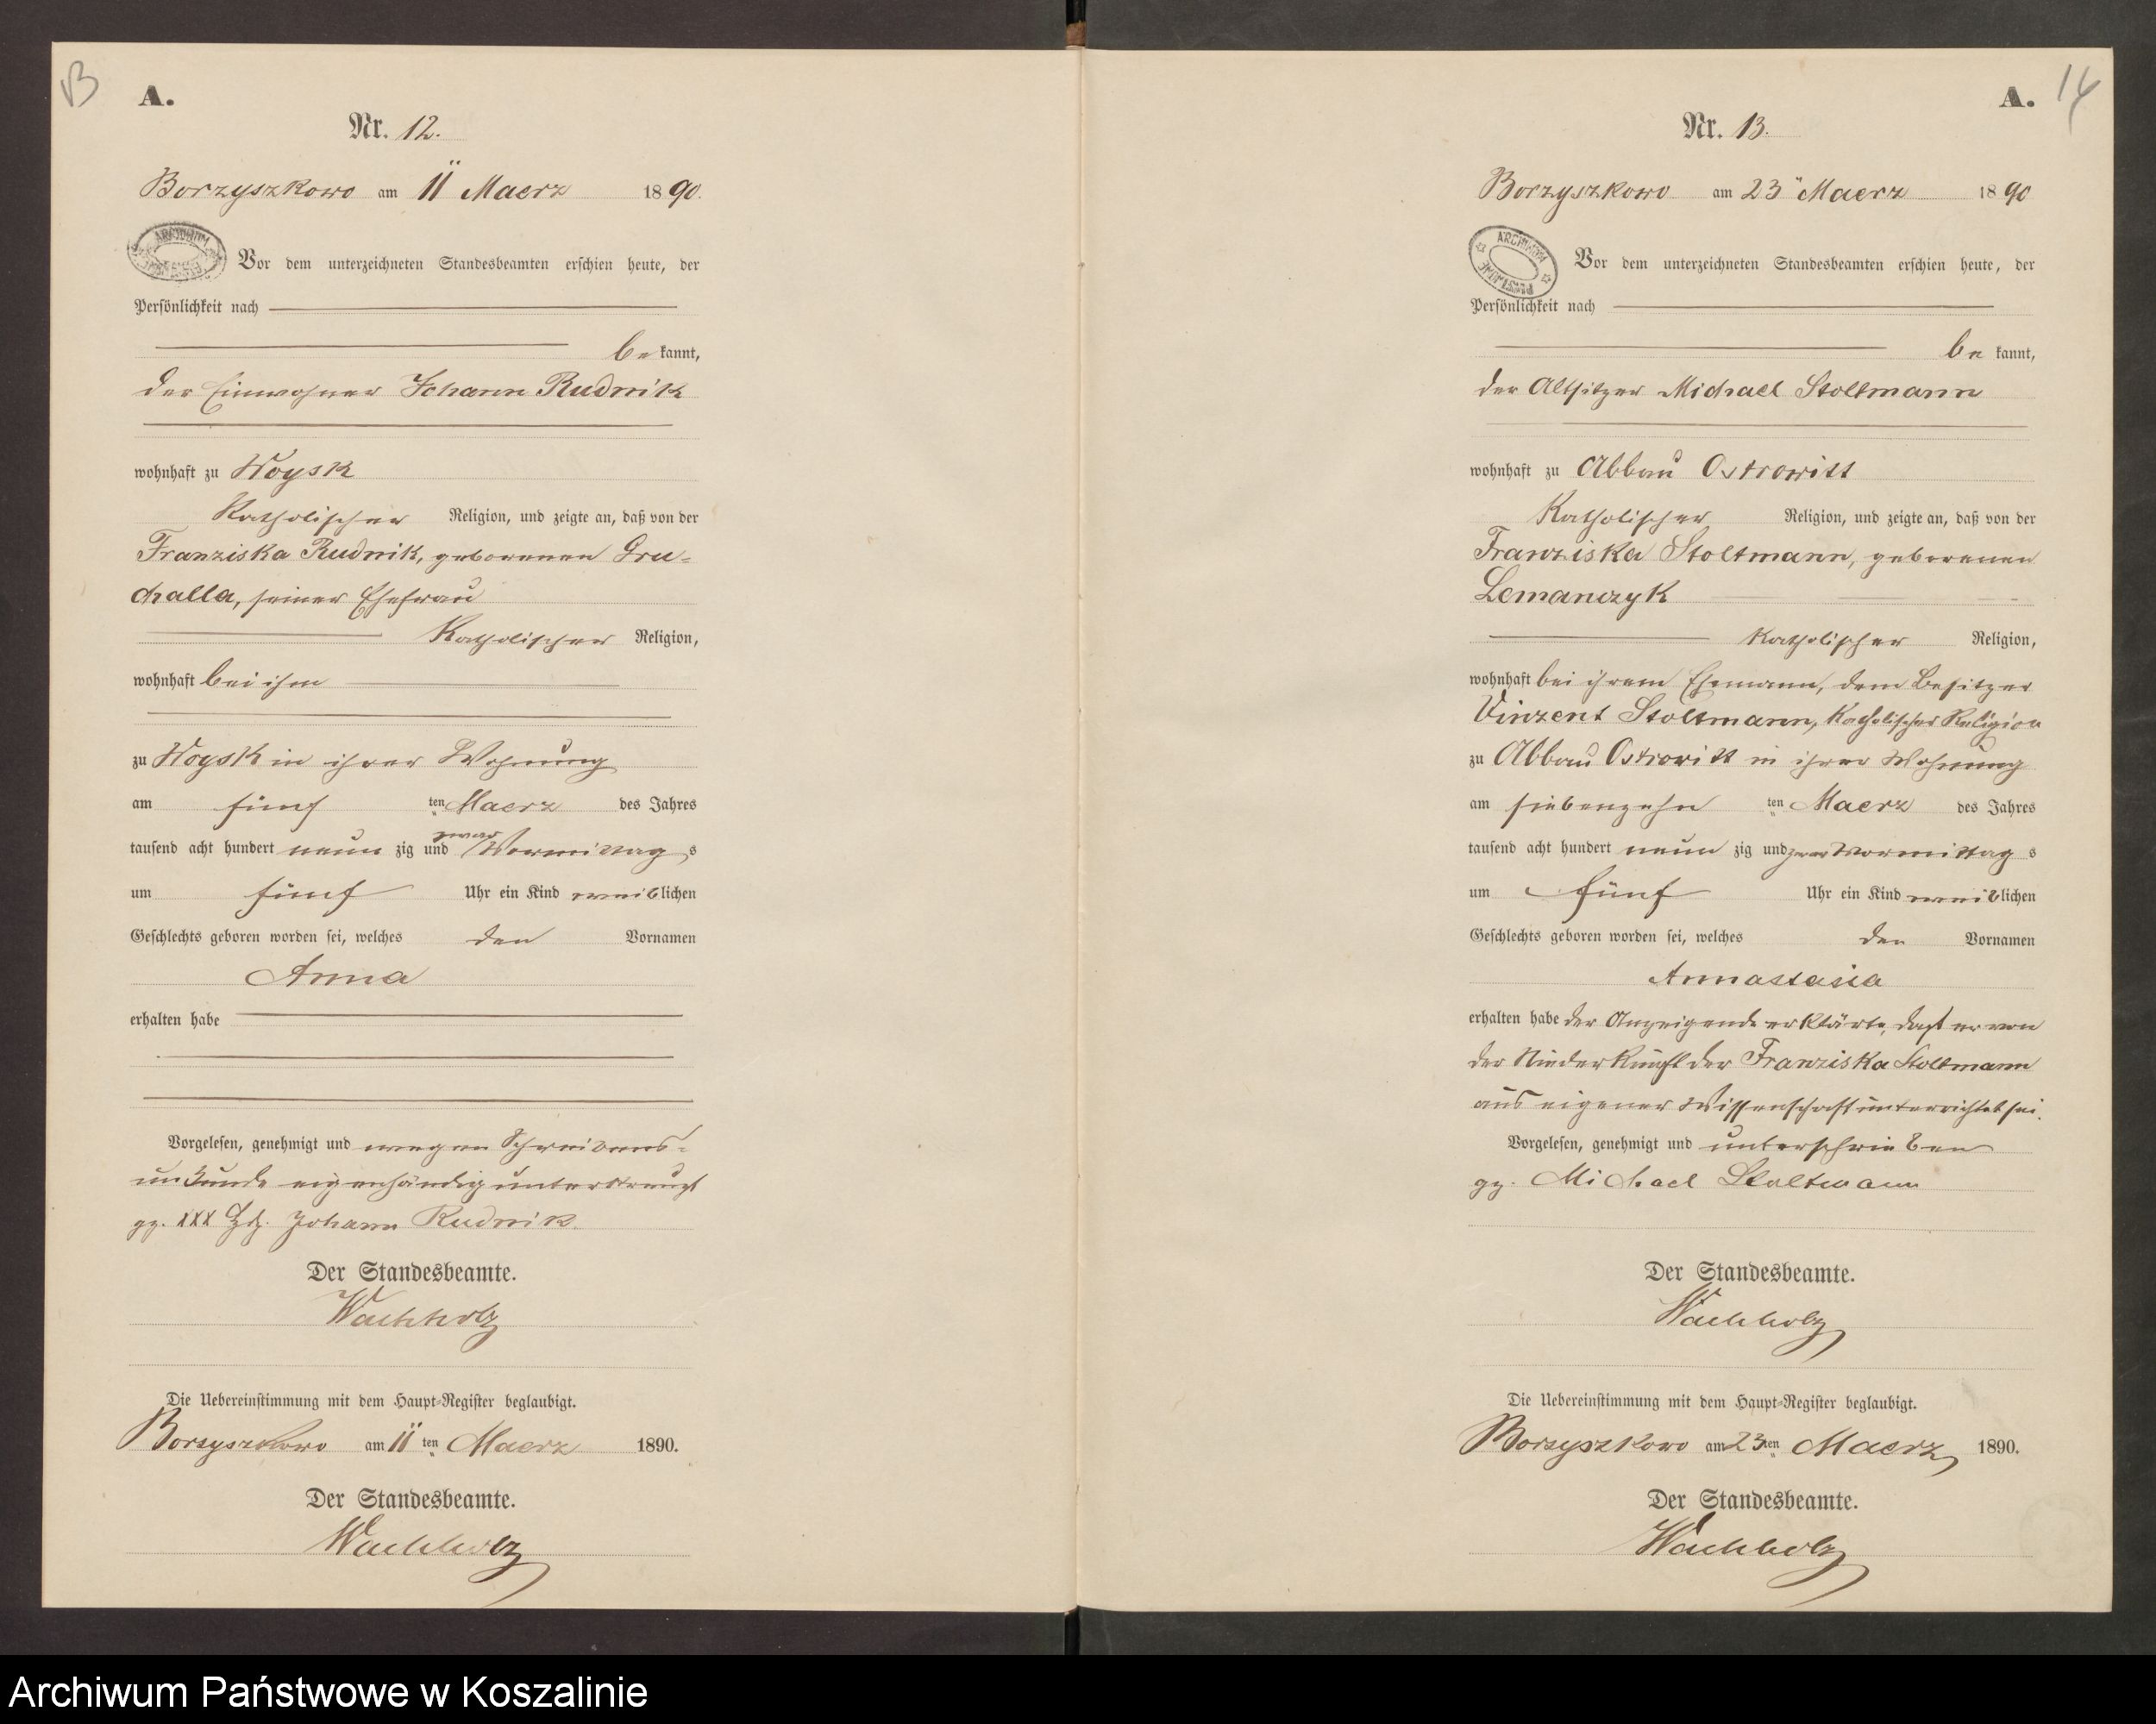 13
A.
Nr. 12.
Borzyszkowo am 11 Maerz 1890.
ARCHIWUM
Vor dem unterzeichneten Standesbeamten erschien heute, der
Persönlichkeit nach
be kannt,
der Einwohner Johann Rudnik
wohnhaft zu Woysk
Katholischer Religion, und zeigte an, daß von der
Franziska Rudnik, geborenen Gru-
challa, seiner Ehefrau
Katholischer Religion,
wohnhaft bei ihm
zu Woysk in ihrer Wohnung
am fünf ten Maerz des Jahres
tausend acht hundert neun zig und zwar Vormittag s
um fünf Uhr ein Kind weiblichen
Geschlechts geboren worden sei, welches den Vornamen
Anna
erhalten habe
Vorgelesen, genehmigt und wegen Schreibens-
unkunde eigenhändig unterkreuzt
gz. XXX Hdz. Johann Rudnik
Der Standesbeamte.
Wachholz
Die Uebereinstimmung mit dem Haupt-Register beglaubigt.
Borzyszkowo am 11 ten Maerz 1890.
Der Standesbeamte.
Wachholz
14
A.
Nr. 13.
Borzyszkowo am 23 Maerz 1890
ARCHIWUM PAŃSTWOWE
Vor dem unterzeichneten Standesbeamten erschien heute, der
Persönlichkeit nach
be kannt,
der Altsitzer Michael Stoltmann
wohnhaft zu Abbau Ostrowitt
Katholischer Religion, und zeigte an, daß von der
Franziska Stoltmann, geborenen
Lemanczyk
Katholischer Religion,
wohnhaft bei ihrem Ehemann, dem Besitzer
Vinzent Stoltmann, Katholischer Religion
zu Abbau Ostrowitt in ihrer Wohnung
am siebenzehn ten Maerz des Jahres
tausend acht hundert neun zig und zwar Vormittag s
um fünf Uhr ein Kind weiblichen
Geschlechts geboren worden sei, welches den Vornamen
Annastasia
erhalten habe der Anzeigende erklärte, daß er von
der Niederkunft der Franziska Stoltmann
aus eigener Wissenschaft unterrichtet sei.
Vorgelesen, genehmigt und unterschrieben
gz. Michael Stoltmann
Der Standesbeamte.
Wachholz
Die Uebereinstimmung mit dem Haupt-Register beglaubigt.
Borzyszkowo am 23 ten Maerz 1890.
Der Standesbeamte.
Wachholz
Archiwum Państwowe w Koszalinie